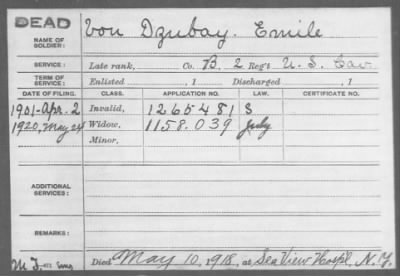 DEAD
NAME OF SOLDIER: von Dzubay. Emile
SERVICE: Late rank, Co. B. 2 Reg't U. S. Cav.
TERM OF SERVICE: Enlisted , 1 Discharged , 1
DATE OF FILING. CLASS. APPLICATION NO. LAW. CERTIFICATE NO.
1901-Apr. 2 Invalid, 1265481 S
1920, May 24 Widow, 1158.039 July
Minor,
ADDITIONAL SERVICES:
REMARKS:
Died May 10, 1918, at Sea View Hospl, N. Y.